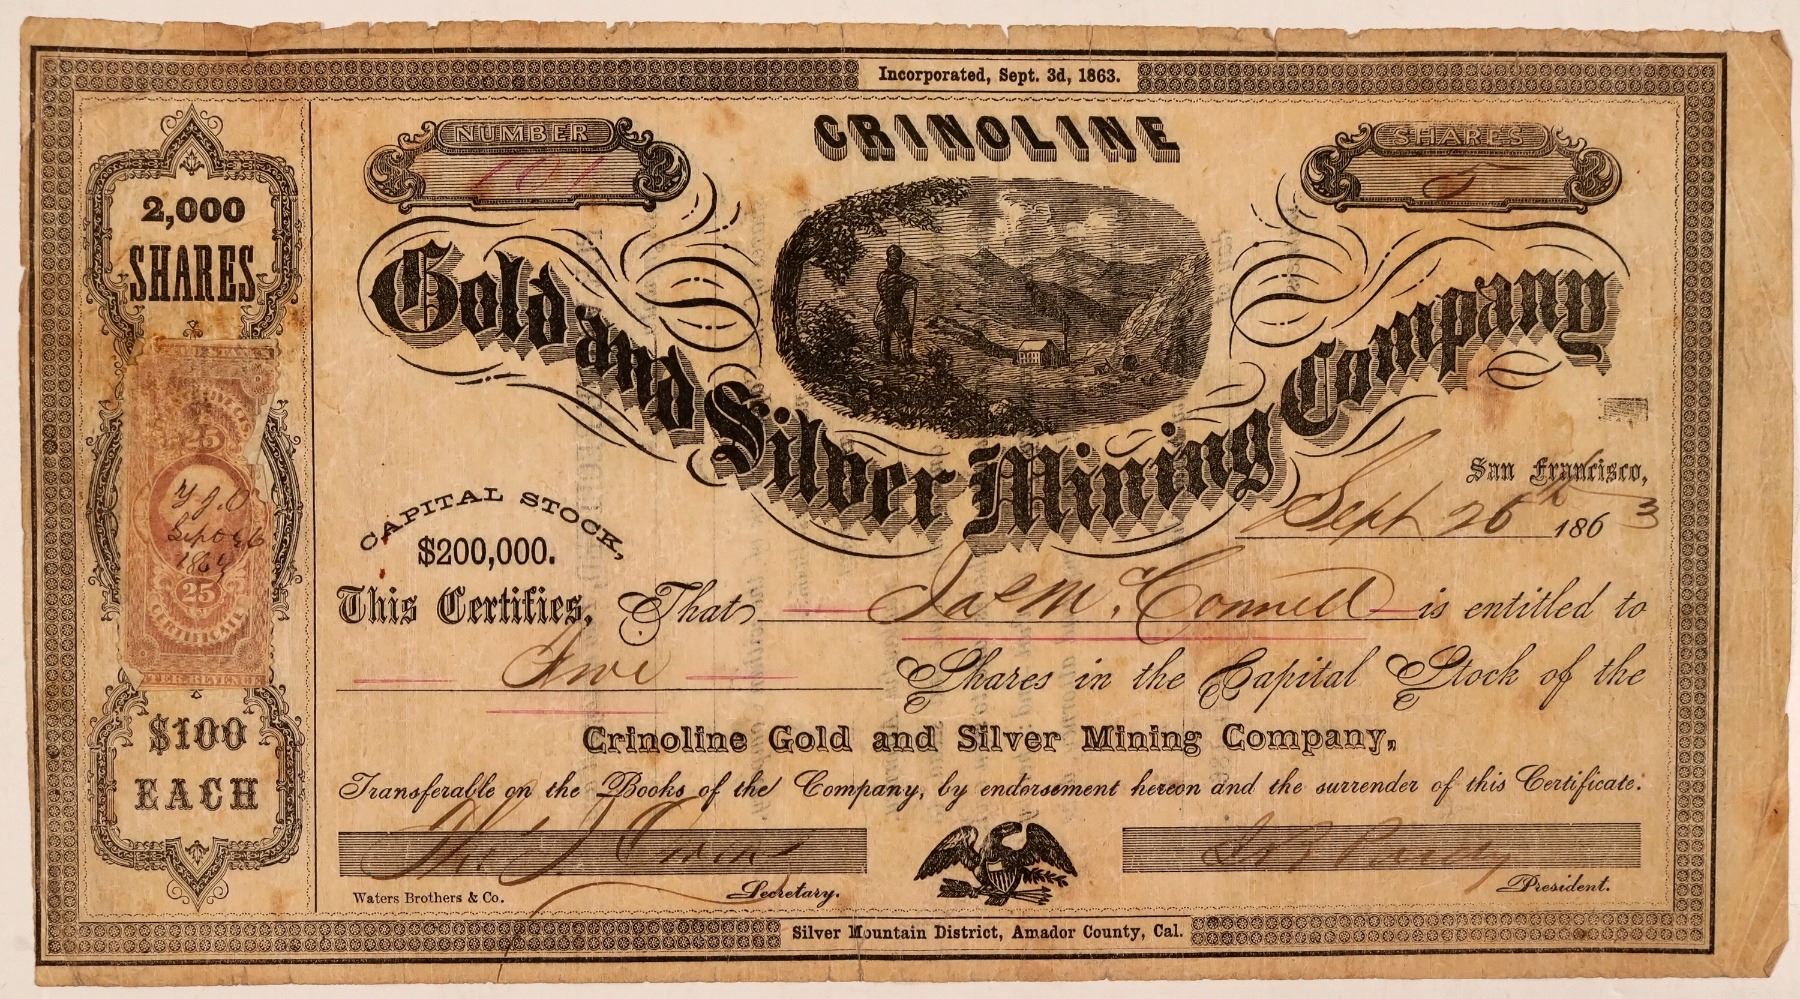 Incorporated, Sept. 3d, 1863.
NUMBER
101
CRINOLINE
SHARES
5
Gold and Silver Mining Company
2,000
SHARES
$100
EACH
25
T. J. O
Sept 26
25
CERTIFICATE
INTER REVENUE
San Francisco,
Sept 26th 1863
CAPITAL STOCK,
$200,000.
This Certifies, That Jas McConnell is entitled to
Five Shares in the Capital Stock of the
Crinoline Gold and Silver Mining Company,
Transferable on the Books of the Company, by endorsement hereon and the surrender of this Certificate.
Secretary.
President.
Waters Brothers & Co.
Silver Mountain District, Amador County, Cal.